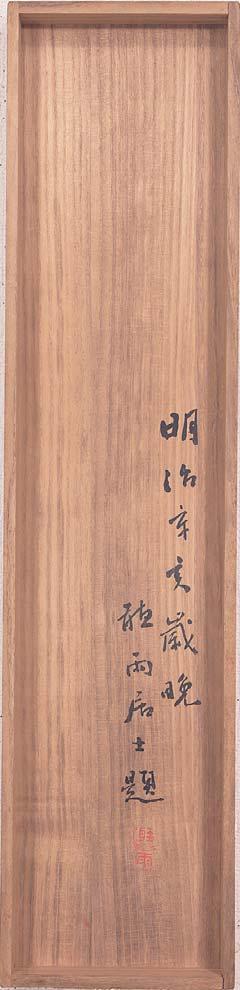 明治辛亥歳晩
聴雨居士題
聴雨